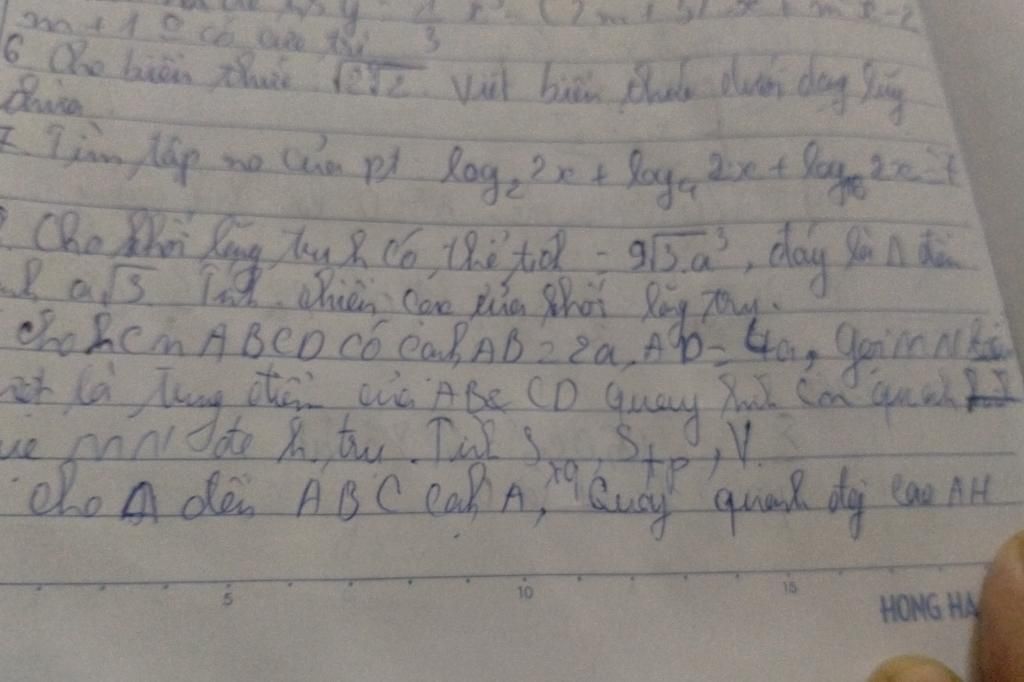 m + 1 có cực trị
6 Cho biểu thức √2∛2 Viết biểu thức dưới dạng lũy
thừa
7. Tìm tập no của pt log₂ 2x + log₄ 2x + log₁₆ 2x = 7
Cho khối lăng trụ có thể tích = 9√3.a³, đáy là Δ đều
a√3 Tính chiều cao của khối lăng trụ.
Cho hcn ABCD có cạnh AB = 2a, AD = 4a, gọi M N
là trung điểm của AB & CD quay hình cn quanh
MN đc h. trụ. Tính Sxq, Stp, V.
Cho Δ đều ABC cạnh A, Quay quanh đg cao AH
5 10 15
HONG HA